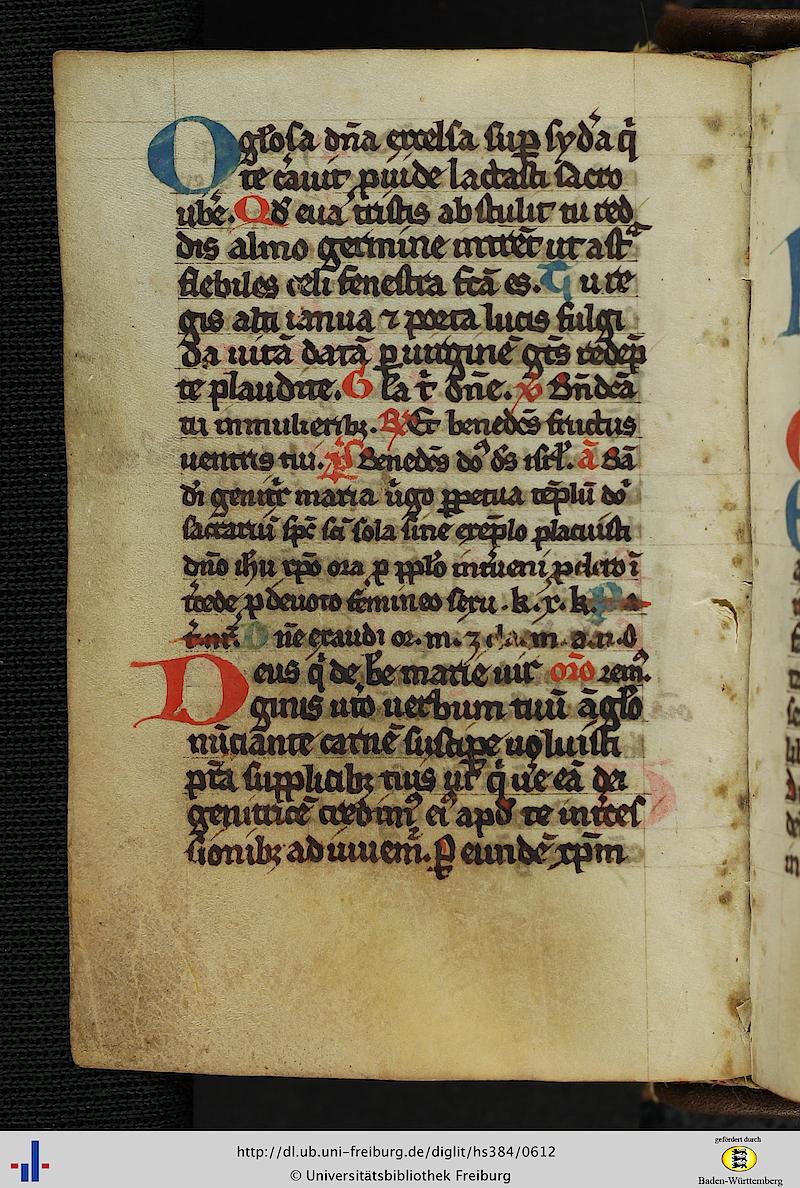 O gl̄osa dn̄a excelsa sup̄ syd̓a q̄
te c̓auit ꝓuide lactasti sacro
ub̓e. Qd̓ eua tristis abstulit tu red
dis almo germine intrēt ut ast̓
flebiles celi fenestra fc̄a es. Tu re
gis alti ianua ⁊ porta lucis fulgi
da uitā datā ꝑ uirginē gēs redēp
te plaudite. Gl̄a t̓ dn̄e. v̓ Bn̄dcā
tu in mulieribꝫ. R̓ Et benedc̄s fructus
uentris tui. p̄s Benedc̄s do᷒ ds̄ isrl̄. ā Bā
di genitͥx maria u̓go ꝑpetua tēplū do᷒
sacrariū spc̄ sc̄i sola sine exēplo placuisti
dn̄o ih̄u xp̄o ora ꝓ pp̄lo int̓ueni ꝓ clero ī
t̓cede ꝓ deuoto femineo sexu. k. x. k.
Dn̄e exaudi or. m. ⁊ clam
Deus q̄ de b̄e marie uir or̄o rem᷒.
ginis ut̓o uerbum tuū āgl̄o
nūciante carnē suscipe uoluisti
pr̄a supplicibꝫ tuis ut q̄ ue̓ eā dei
genitricē credim᷒ ei᷒ apd̓ te int̓ces
sionibꝫ adiuuem̄. ꝑ eundē xp̄m
http://dl.ub.uni-freiburg.de/diglit/hs384/0612
© Universitätsbibliothek Freiburg
gefördert durch
Baden-Württemberg